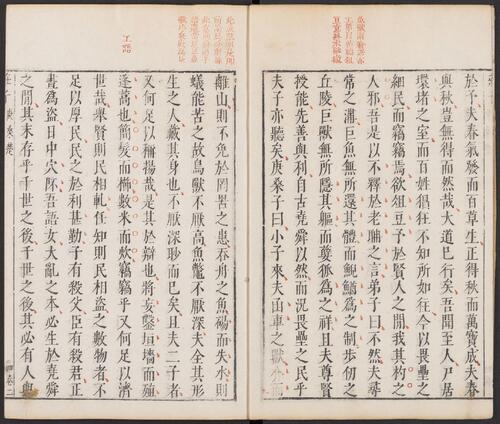 於予夫春氣發而百草生正得秋而萬寶成夫春
與秋豈無得而然哉大道已行矣吾聞至人尸居
環堵之室而百姓猖狂不知所如往今以畏壘之
細民而竊竊焉欲俎豆予於賢人之閒我其杓之
人邪吾是以不釋於老聃之言弟子曰不然夫尋
常之溝巨魚無所還其體而鯢鰌為之制步仞之
丘陵巨獸無所隱其軀而㜸狐為之祥且夫尊賢
授能先善與利自古堯舜以然而況畏壘之民乎
夫子亦聽矣庚桑子曰小子來夫函車之獸介而
離山則不免於罔罟之患吞舟之魚碭而失水則
蟻能苦之故鳥獸不厭高魚鱉不厭深夫全其形
生之人藏其身也不厭深眇而已矣且夫二子者
又何足以稱揚哉是其於辯也將妄鑿垣墻而殖
蓬蒿也簡髮而櫛數米而炊竊竊乎又何足以濟
世哉舉賢則民相軋任知則民相盜之數物者不
足以厚民民之於利甚勤子有殺父臣有殺君正
晝為盜日中穴阫吾語女大亂之本必生於堯舜
之閒其末存乎千世之後千世之後其必有人與